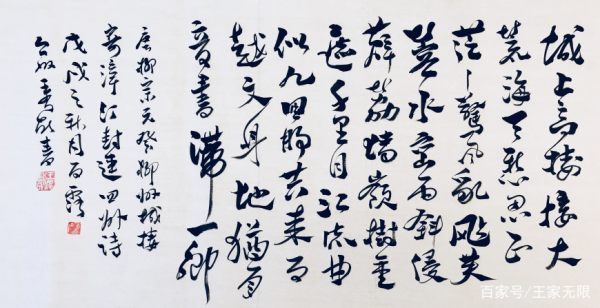 城上高樓接大
荒海天愁思正
茫〻驚風乱颭芙
蓉水密雨斜侵
薜荔墙嶺樹重
遮千里目江流曲
似九回腸共来百
越文身地猶自
音書滞一鄉
唐柳宗元登柳州城樓
寄漳汀封連四州詩
戊戌之秋月白露
書
百家号/王家无限